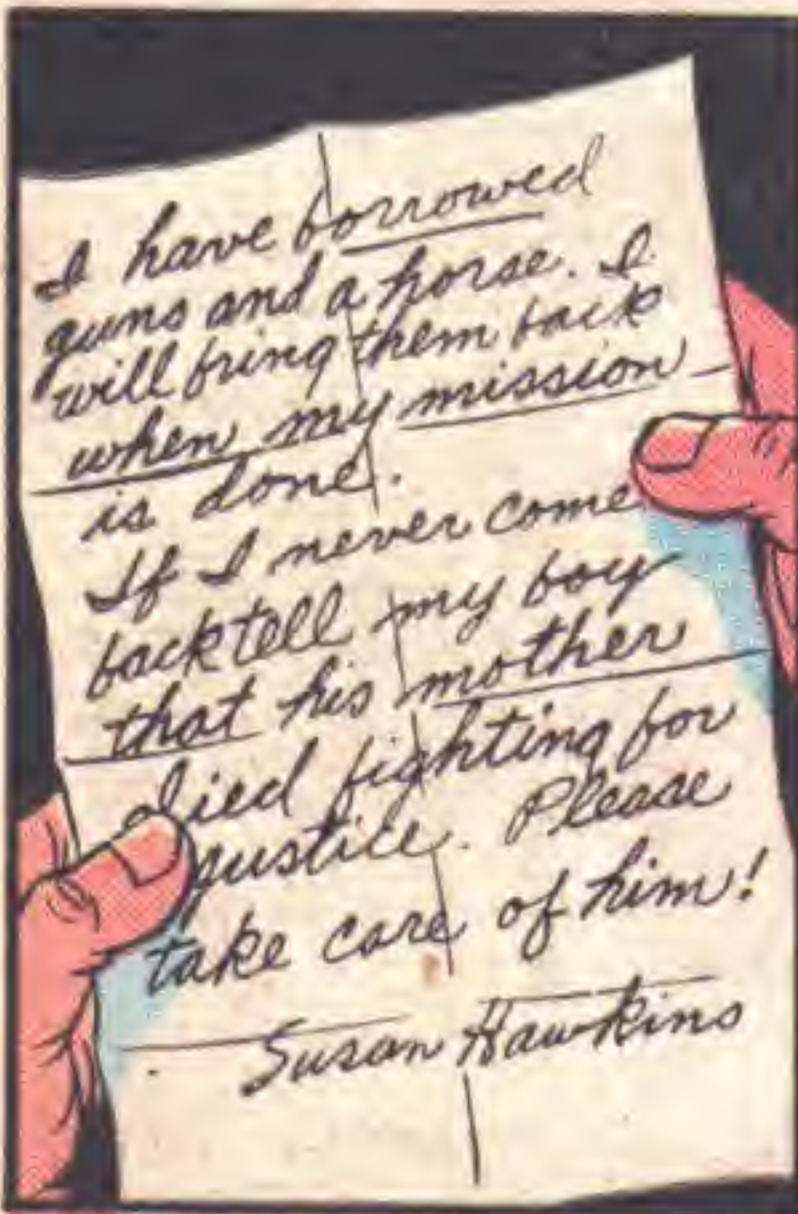 I have borrowed
guns and a horse. I
will bring them back
when my mission
is done.
If I never come
back tell my boy
that his mother
died fighting for
justice. Please
take care of him!
Susan Hawkins